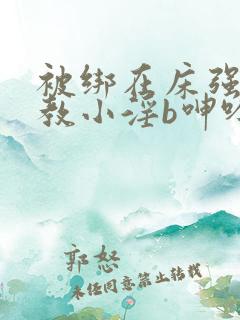 被绑在床强
教小淫b呻吟
郭怒
未经同意禁止转载